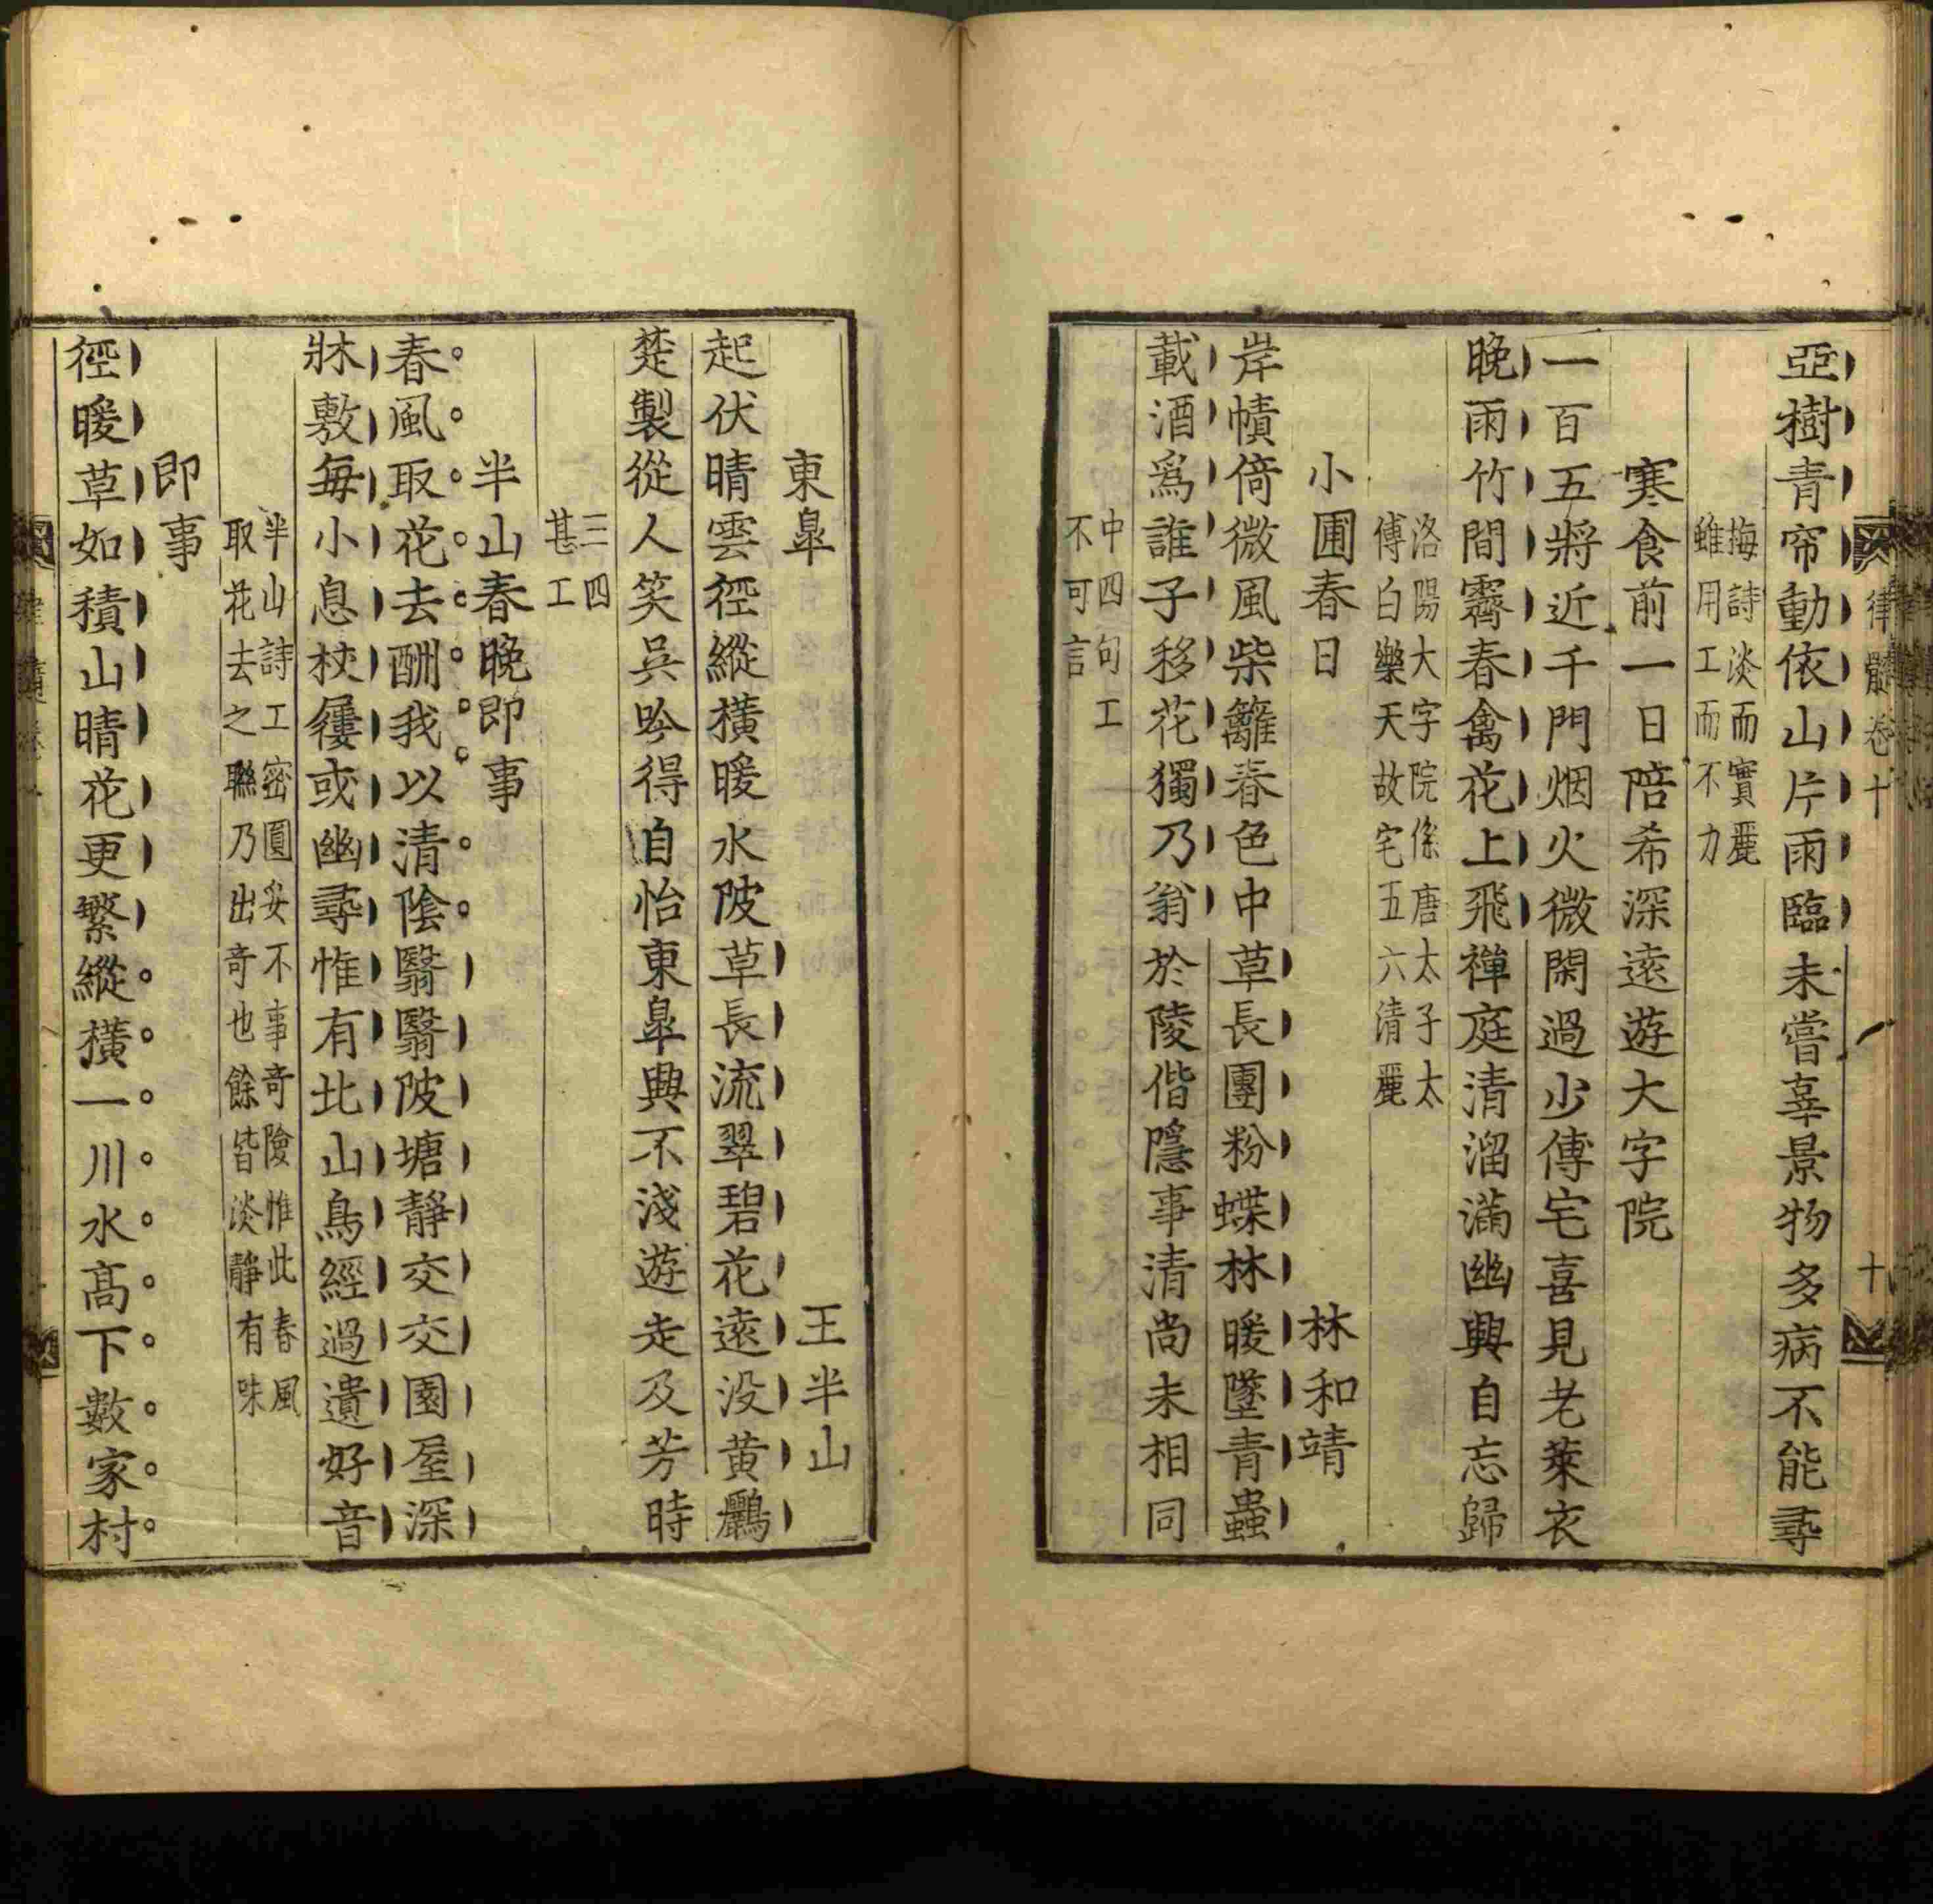 律髓卷十
十
亞樹青帘動依山片雨臨未嘗辜景物多病不能尋
梅詩淡而實麗
雖用工而不力
寒食前一日陪希深遠遊大字院
一百五將近千門烟火微閑過少傅宅喜見老萊衣
晚雨竹間霽春禽花上飛禪庭清溜滿幽興自忘歸
洛陽大字院係唐太子太
傅白樂天故宅五六清麗
小圃春日
林和靖
岸幘倚微風柴籬春色中草長團粉蝶林暖墜青蟲
載酒爲誰子移花獨乃翁於陵偕隱事清尚未相同
中四句工
不可言
東臯
王半山
起伏晴雲徑縱橫暖水陂草長流翠碧花遠没黄鸝
楚製從人笑吳吟得自怡東臯興不淺遊走及芳時
三四
甚工
半山春晚即事
春風取花去酬我以清陰翳翳陂塘靜交交園屋深
牀敷每小息杖屨或幽尋惟有北山鳥經過遺好音
半山詩工密圓妥不事奇險惟此春風
取花去之聯乃出奇也餘皆淡靜有味
即事
徑暖草如積山晴花更繁縱橫一川水高下數家村